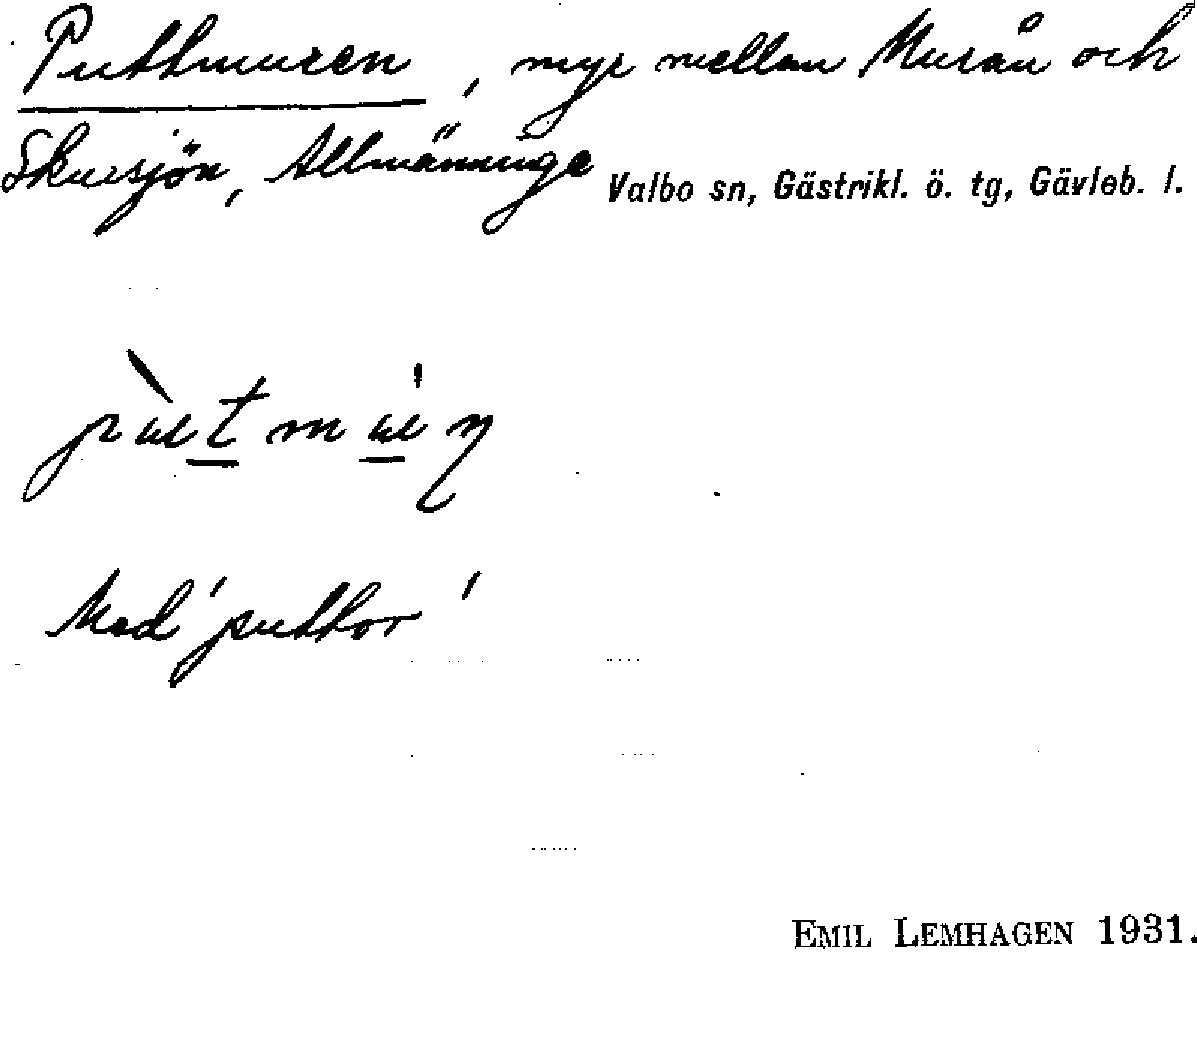 Puttmuren, myr mellan Murån och
Skursjön, Allmänninge Valbo sn, Gästrikl. ö. tg, Gävleb. l.
Med 'puttor'
EMIL LEMHAGEN 1931.